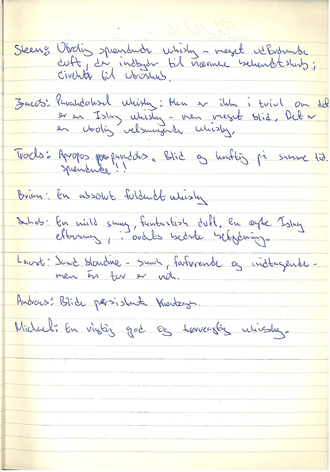 Steen: Utrolig spændende whisky - meget udfordrende
duft, der indbyder til nærmere bekendtskab;
til
Jacob: Paradoksal whisky: Man er ikke i tvivl om det
er en Islay whisky - men meget blid. Det er
en utrolig velsmagende whisky.
Troels: Apropos paradoks. Blid og kraftig på samme tid.
Spændende!!
Brian: En absolut fuldendt whisky
En mild smag, fantastisk duft. En ægte Islay
eftersmag, i ordets bedste betydning.
Laust: Sand blondine - smuk, forførende og indtagende -
men én tur er nok.
Andreas: Blide persistente
Michael: En rigtig god og whisky.